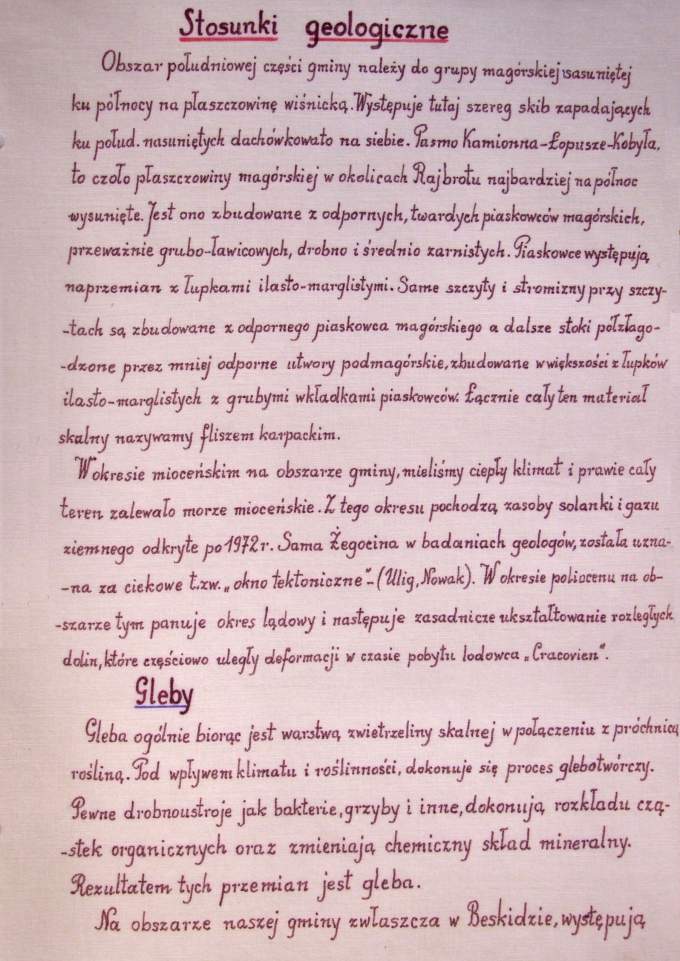 Stosunki geologiczne
Obszar południowej części gminy należy do grupy magórskiej zasuniętej
ku północy na płaszczowinę wiśnicką. Występuje tutaj szereg skib zapadających
ku połud. nasuniętych dachówkowato na siebie. Pasmo Kamionna-Łopusze-Kobyła,
to czoło płaszczowiny magórskiej w okolicach Rajbrotu najbardziej na północ
wysunięte. Jest ono zbudowane z odpornych, twardych piaskowców magórskich,
przeważnie grubo-ławicowych, drobno i średnio ziarnistych. Piaskowce występują
naprzemian z łupkami ilasto-marglistymi. Same szczyty i stromizny przy szczy-
-tach są zbudowane z odpornego piaskowca magórskiego a dalsze stoki półzłago-
-dzone przez mniej odporne utwory podmagórskie, zbudowane w większości z łupków
ilasto-marglistych z grubymi wkładkami piaskowców. Łącznie cały ten materiał
skalny nazywamy fliszem karpackim.
W okresie mioceńskim na obszarze gminy, mieliśmy ciepły klimat i prawie cały
teren zalewało morze mioceńskie. Z tego okresu pochodzą zasoby solanki i gazu
ziemnego odkryte po 1972 r. Sama Żegocina w badaniach geologów, została uzna-
-na za ciekowe t.zw. „okno tektoniczne" - (Ulig, Nowak). W okresie poliocenu na ob-
-szarze tym panuje okres lądowy i następuje zasadnicze ukształtowanie rozległych
dolin, które częściowo uległy deformacji w czasie pobytu lodowca „Cracovien".
Gleby
Gleba ogólnie biorąc jest warstwą zwietrzeliny skalnej w połączeniu z próchnicą
rośliną. Pod wpływem klimatu i roślinności, dokonuje się proces glebotwórczy.
Pewne drobnoustroje jak bakterie, grzyby i inne, dokonują rozkładu czą-
-stek organicznych oraz zmieniają chemiczny skład mineralny.
Rezultatem tych przemian jest gleba.
Na obszarze naszej gminy zwłaszcza w Beskidzie, występują